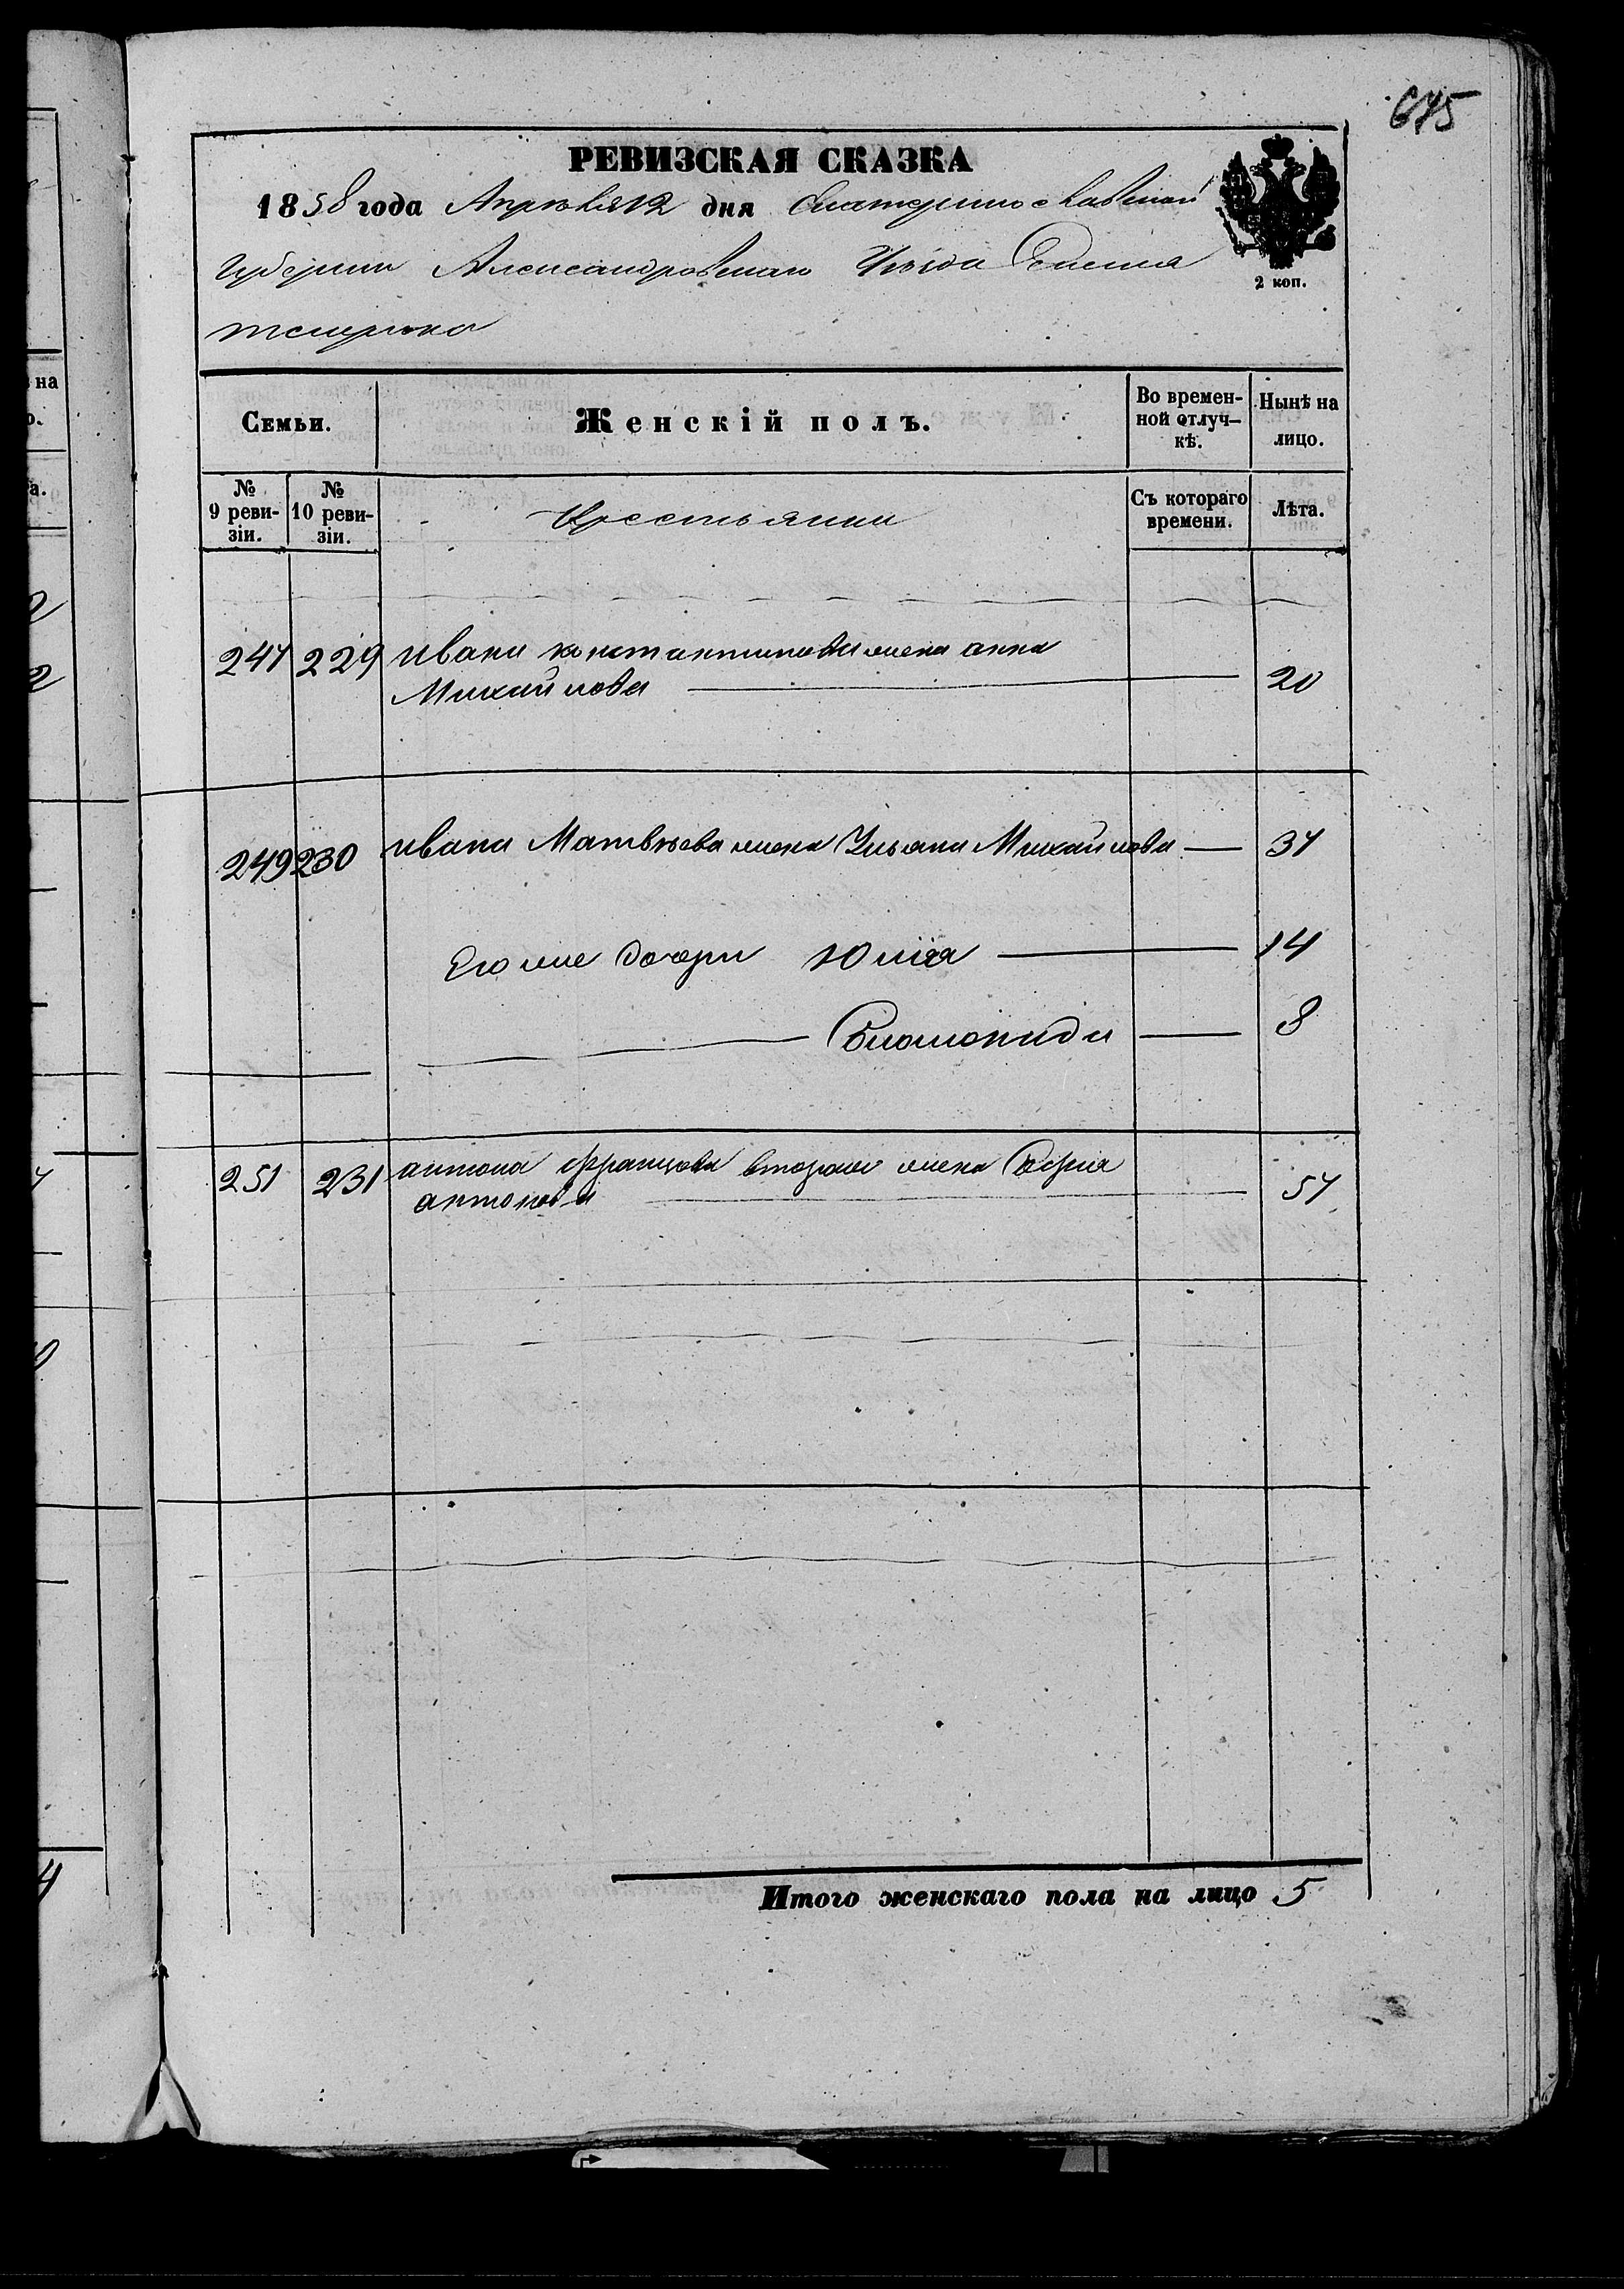 675
РЕВИЗСКАЯ СКАЗКА
1858 года Апрѣля 12 дня Екатеринославской
Губерніи Александровскаго Уѣзда Селенія
2 коп.
Семьи.
Женскій полъ.
Во времен-
ной отлуч-
кѣ.
Нынѣ на
лицо.
№
9 реви-
зіи.
№
10 реви-
зіи.
Крестьянки
Съ котораго
времени.
Лѣта.
247 229 ивана константинова жена анна
Михайлова 20
249 230 ивана Матвѣева жена Ульяна Михайлова 37
Его же дочери Юлія 14
8
251 231 антона францова вторая жена Софія
антонова 57
Итого женскаго пола на лицо 5
на